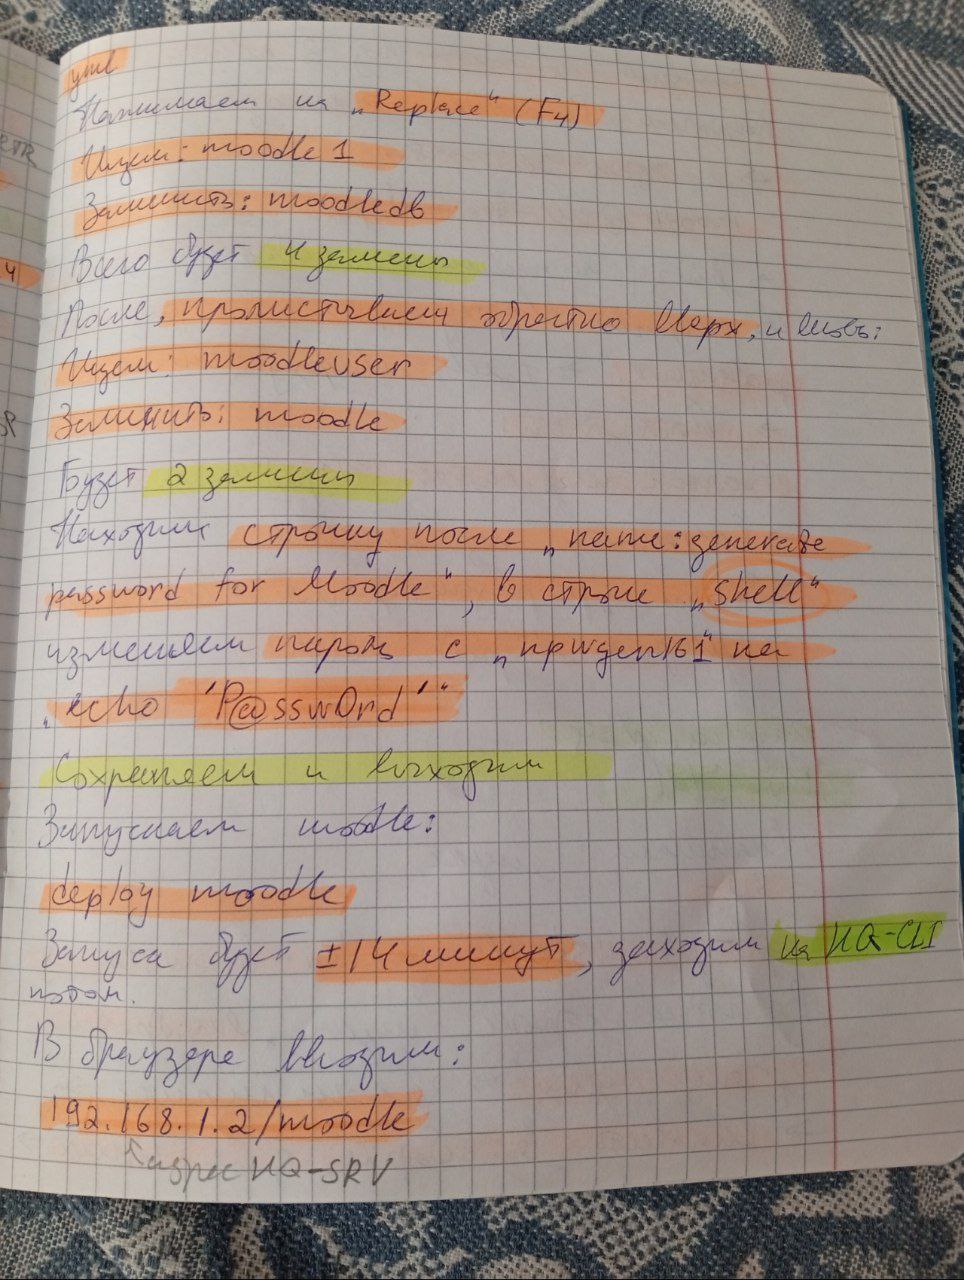 yml
Нажимаем на „Replace“ (F4)
Ищем: moodle1
Заменить: moodledb
Всего будет 4 замены
После, пролистываем обратно вверх, и вновь:
Ищем: moodleuser
Заменить: moodle
Будет 2 замены
Находим строчку после „name: generate
password for Moodle“, в строке „shell“
изменяем пароль с „apwgen161“ на
„echo 'P@ssw0rd'“
Сохраняем и выходим
Запускаем moodle:
deploy moodle
Запуск будет ±14 минут, заходим на HQ-CLI
потом.
В браузере вводим:
192.168.1.2/moodle
адрес HQ-SRV